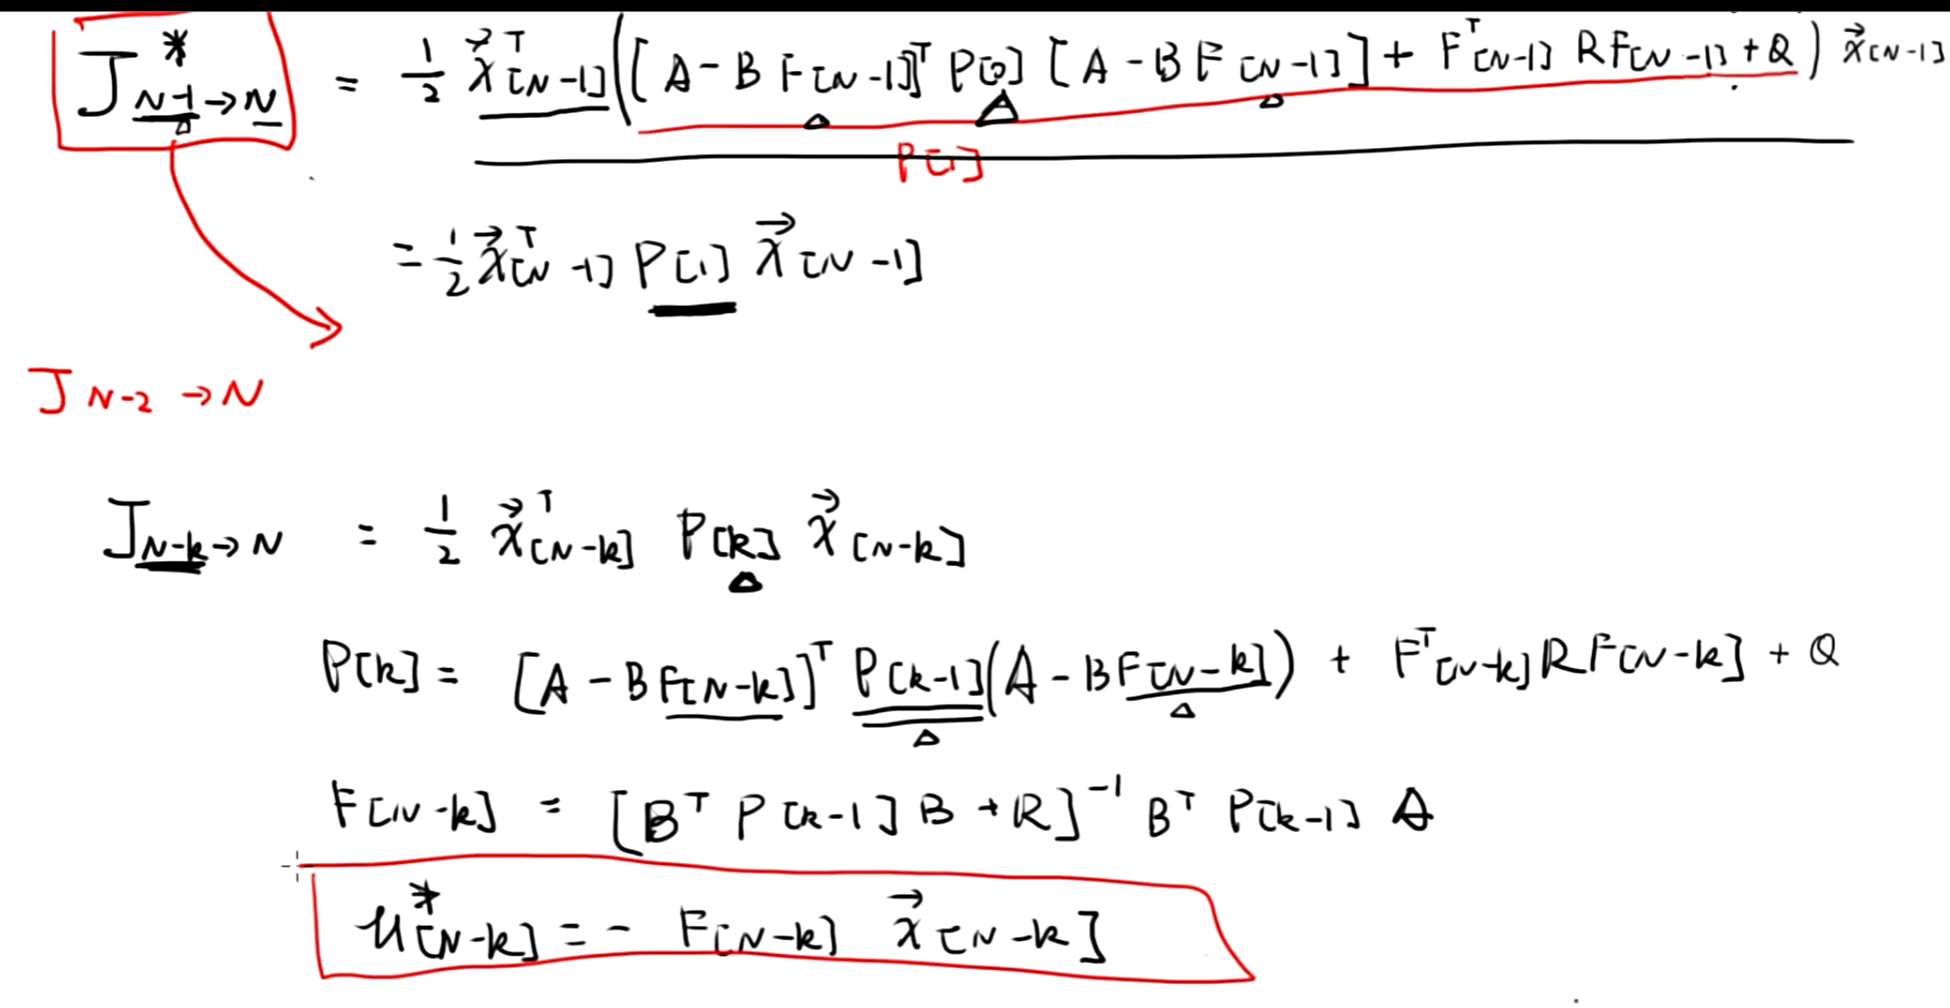 J*_{N-1→N} = 1/2 x⃗ᵀ[N-1] ([A-BF[N-1]]ᵀ P[0] [A-BF[N-1]] + Fᵀ[N-1] RF[N-1] + Q) x⃗[N-1]
P[1]
= 1/2 x⃗ᵀ[N-1] P[1] x⃗[N-1]
J_{N-2→N}
J_{N-k→N} = 1/2 x⃗ᵀ[N-k] P[k] x⃗[N-k]
P[k] = [A-BF[N-k]]ᵀ P[k-1] (A-BF[N-k]) + Fᵀ[N-k] RF[N-k] + Q
F[N-k] = [Bᵀ P[k-1] B + R]⁻¹ Bᵀ P[k-1] A
u*[N-k] = - F[N-k] x⃗[N-k]